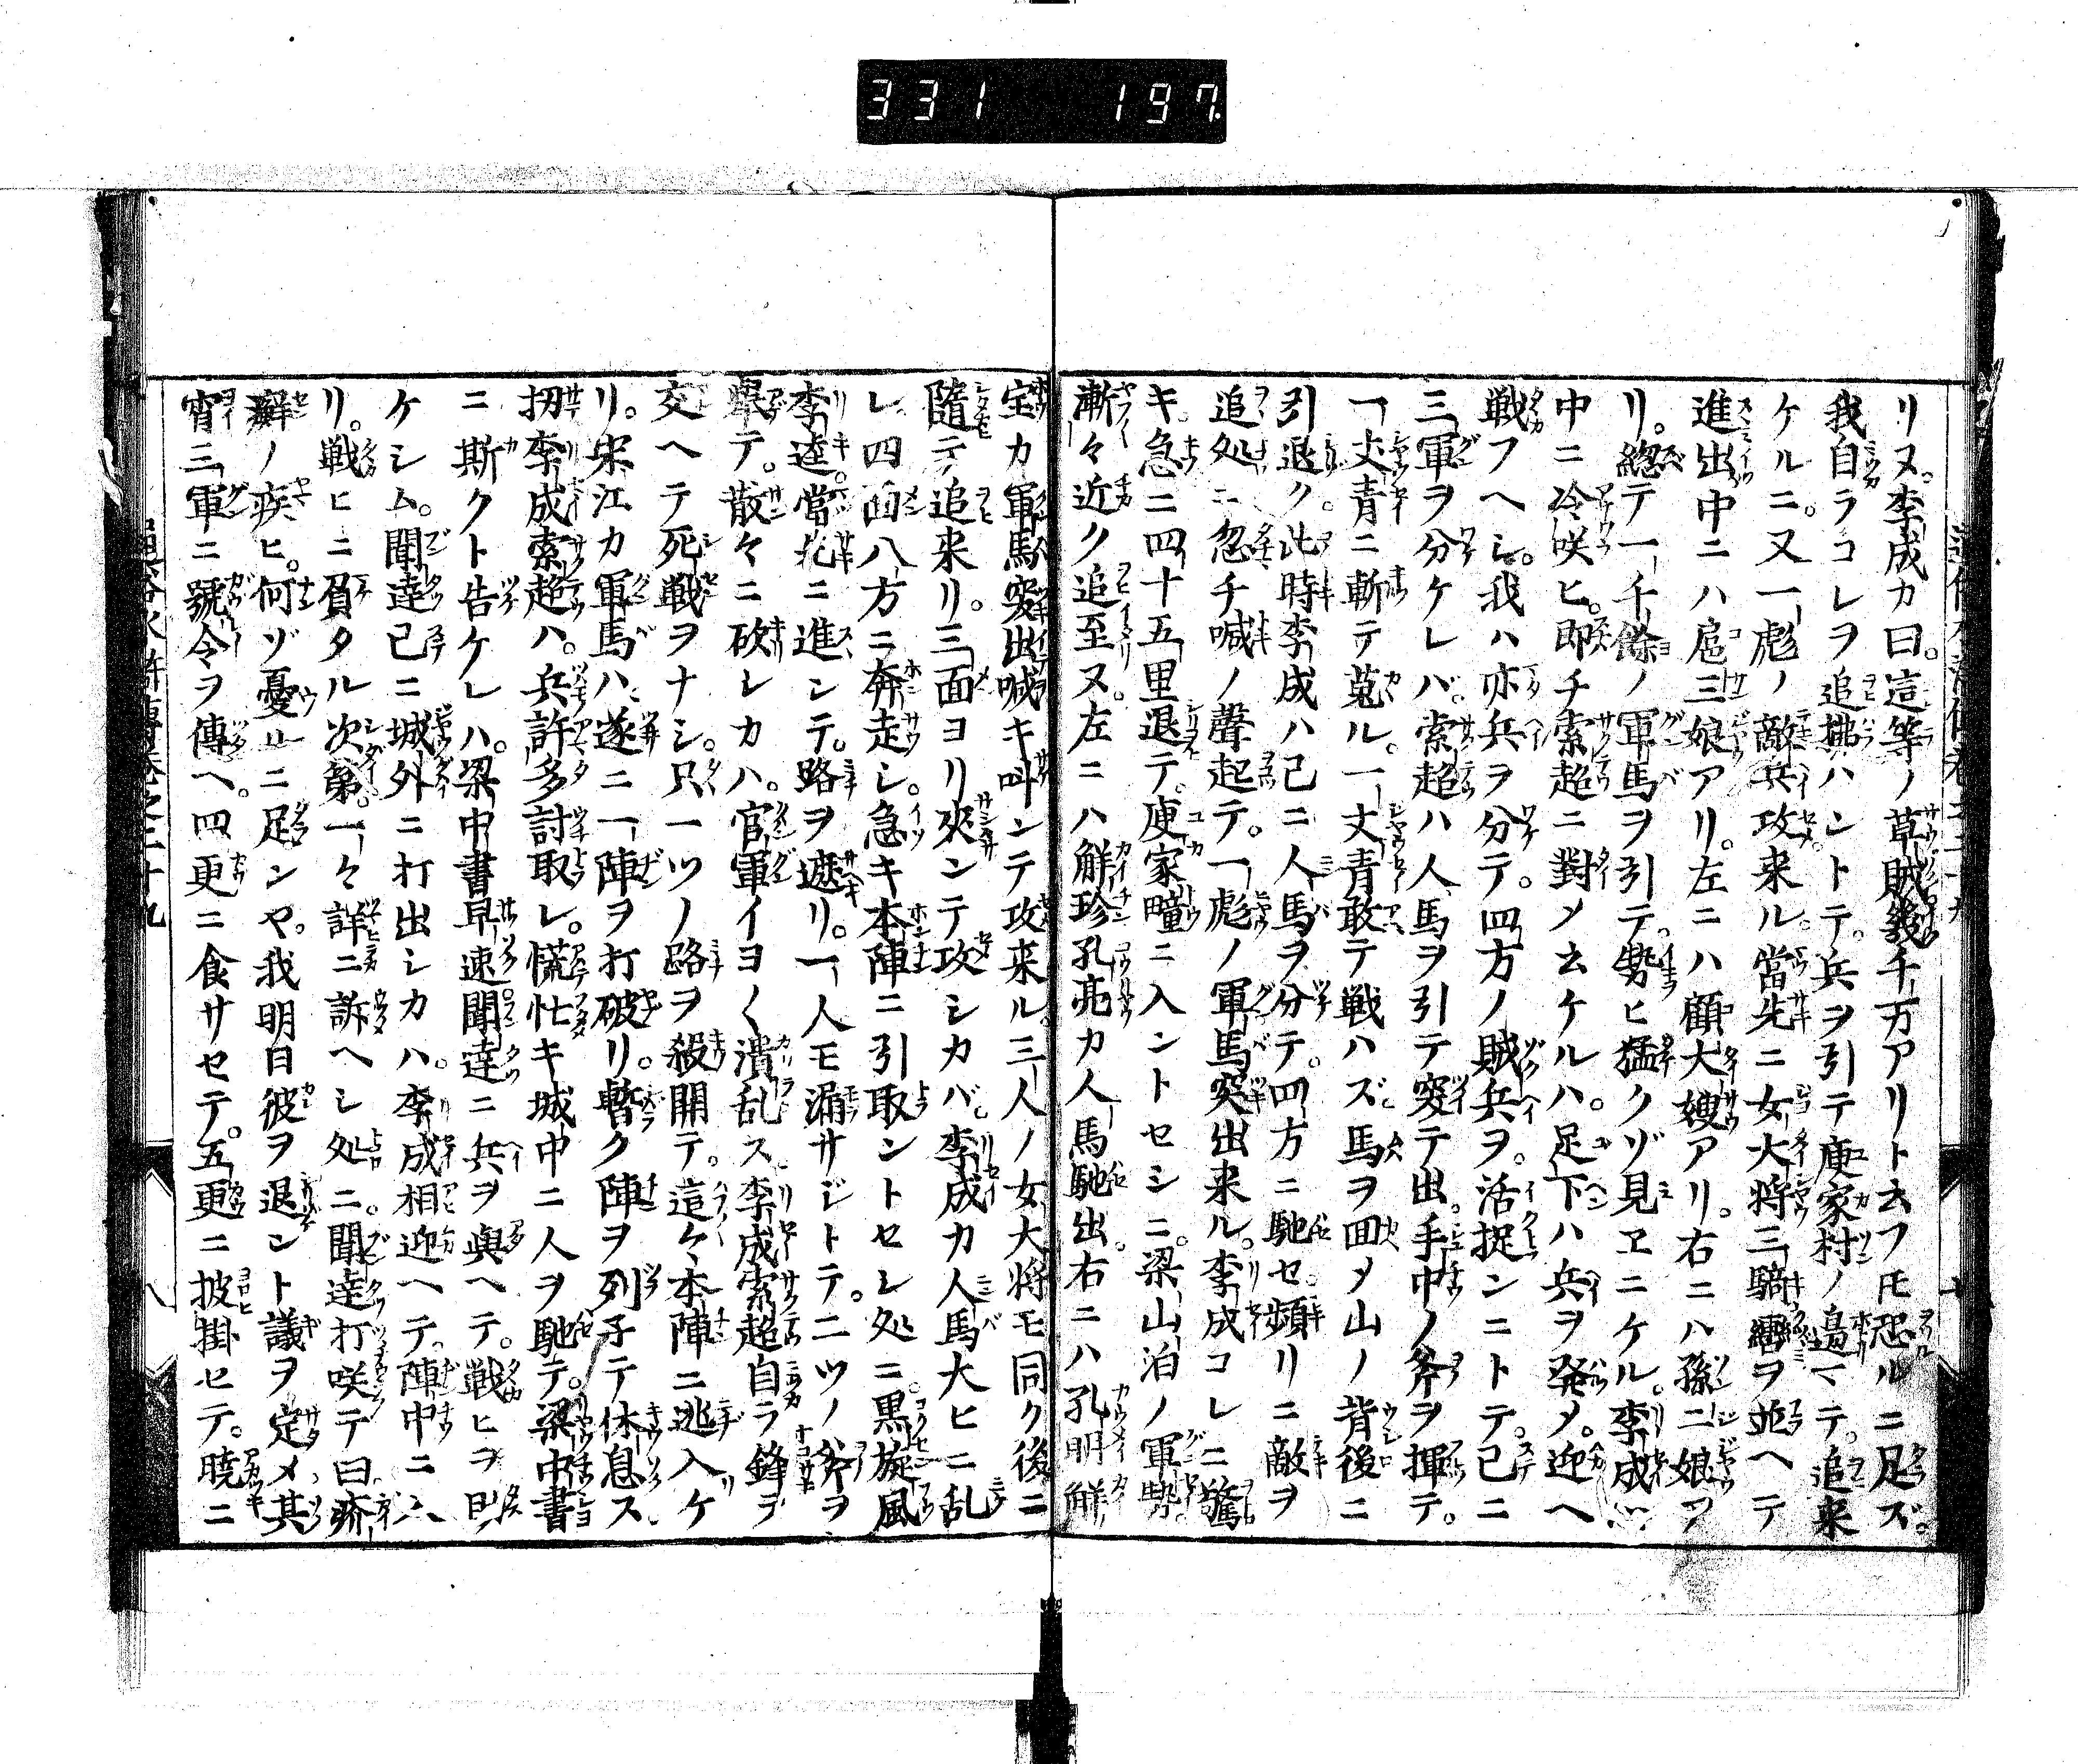 331 197.
リヌ。李成カ曰。這等ノ草賊幾千万アリト云フ𪜈恐ルニ足ズ。
我自ラコレヲ追拂ハントテ。兵ヲ引テ庾家村ノ邉マテ。追来
ケルニ。又一彪ノ敵兵攻来ル。當先ニ女大将三騎轡ヲ並ヘテ
進出中ニハ扈三娘アリ。左ニハ顧大嫂アリ。右ニハ孫二娘ア
リ。總テ一千餘ノ軍馬ヲ引テ。勢ヒ猛クゾ見ヱニケル。李成
中ニ冷咲ヒ。即チ索超ニ對メ云ケルハ。足下ハ兵ヲ発メ。迎ヘ
戦フヘシ。我ハ亦兵ヲ分テ。四方ノ賊兵ヲ。活捉ンニトテ。已ニ
三軍ヲ分ケレバ。索超ハ人馬ヲ引テ突テ出。手中ノ斧ヲ揮テ。
一丈青ニ斬テ蒐ル。一丈青敢テ戦ハズ。馬ヲ回メ山ノ背後ニ
引退ク。此時李成ハ已ニ人馬ヲ分テ。四方ニ馳セ。頻リニ敵ヲ
追処ニ忽チ喊ノ聲起テ。一彪ノ軍馬突出来ル。李成コレニ驚
キ。急ニ四十五里退テ。庾家疃ニ入ントセシニ。梁山泊ノ軍勢。
漸々近ク追至ヌ。左ニハ解珍孔亮カ人馬馳出。右ニハ孔明解
宝カ軍馬突出喊キ叫ンテ攻来ル。三人ノ女大将モ同ク後ニ
隨テ追来リ。三面ヨリ夾ンテ攻シカバ。李成カ人馬大ヒニ乱
レ四面八方ニ奔走シ。急キ本陣ニ引取ントセシ処ニ。黒旋風
李逵。當先ニ進ンテ。路ヲ遮リ。一人モ漏サジトテ。二ツノ斧ヲ
舉テ。散々ニ砍シカハ。官軍イヨ〱潰乱ス。李成索超自ラ鋒ヲ
交ヘテ死戦ヲナシ。只一ツノ路ヲ殺開テ。這々本陣ニ逃入ケ
リ。宋江カ軍馬ハ。遂ニ一陣ヲ打破リ。暫ク陣ヲ列子テ休息ス。
扨李成索超ハ。兵許多討取レ。慌忙キ城中ニ人ヲ馳テ。梁中書
ニ斯クト告ケレハ。梁中書早速聞逹ニ兵ヲ與ヘテ。戦ヒヲ助
ケシム。聞逹已ニ城外ニ打出シカハ。李成相迎ヘテ。陣中ニ入
リ。戦ヒニ負タル次第。一々詳ニ訴ヘシ処ニ。聞逹打咲テ曰疥
癬ノ疾ヒ。何ゾ憂ルニ足ンヤ。我明日彼ヲ退ント議ヲ定メ。其
宵三軍ニ號令ヲ傳ヘ。四更ニ食サセテ。五更ニ披掛セテ。曉ニ